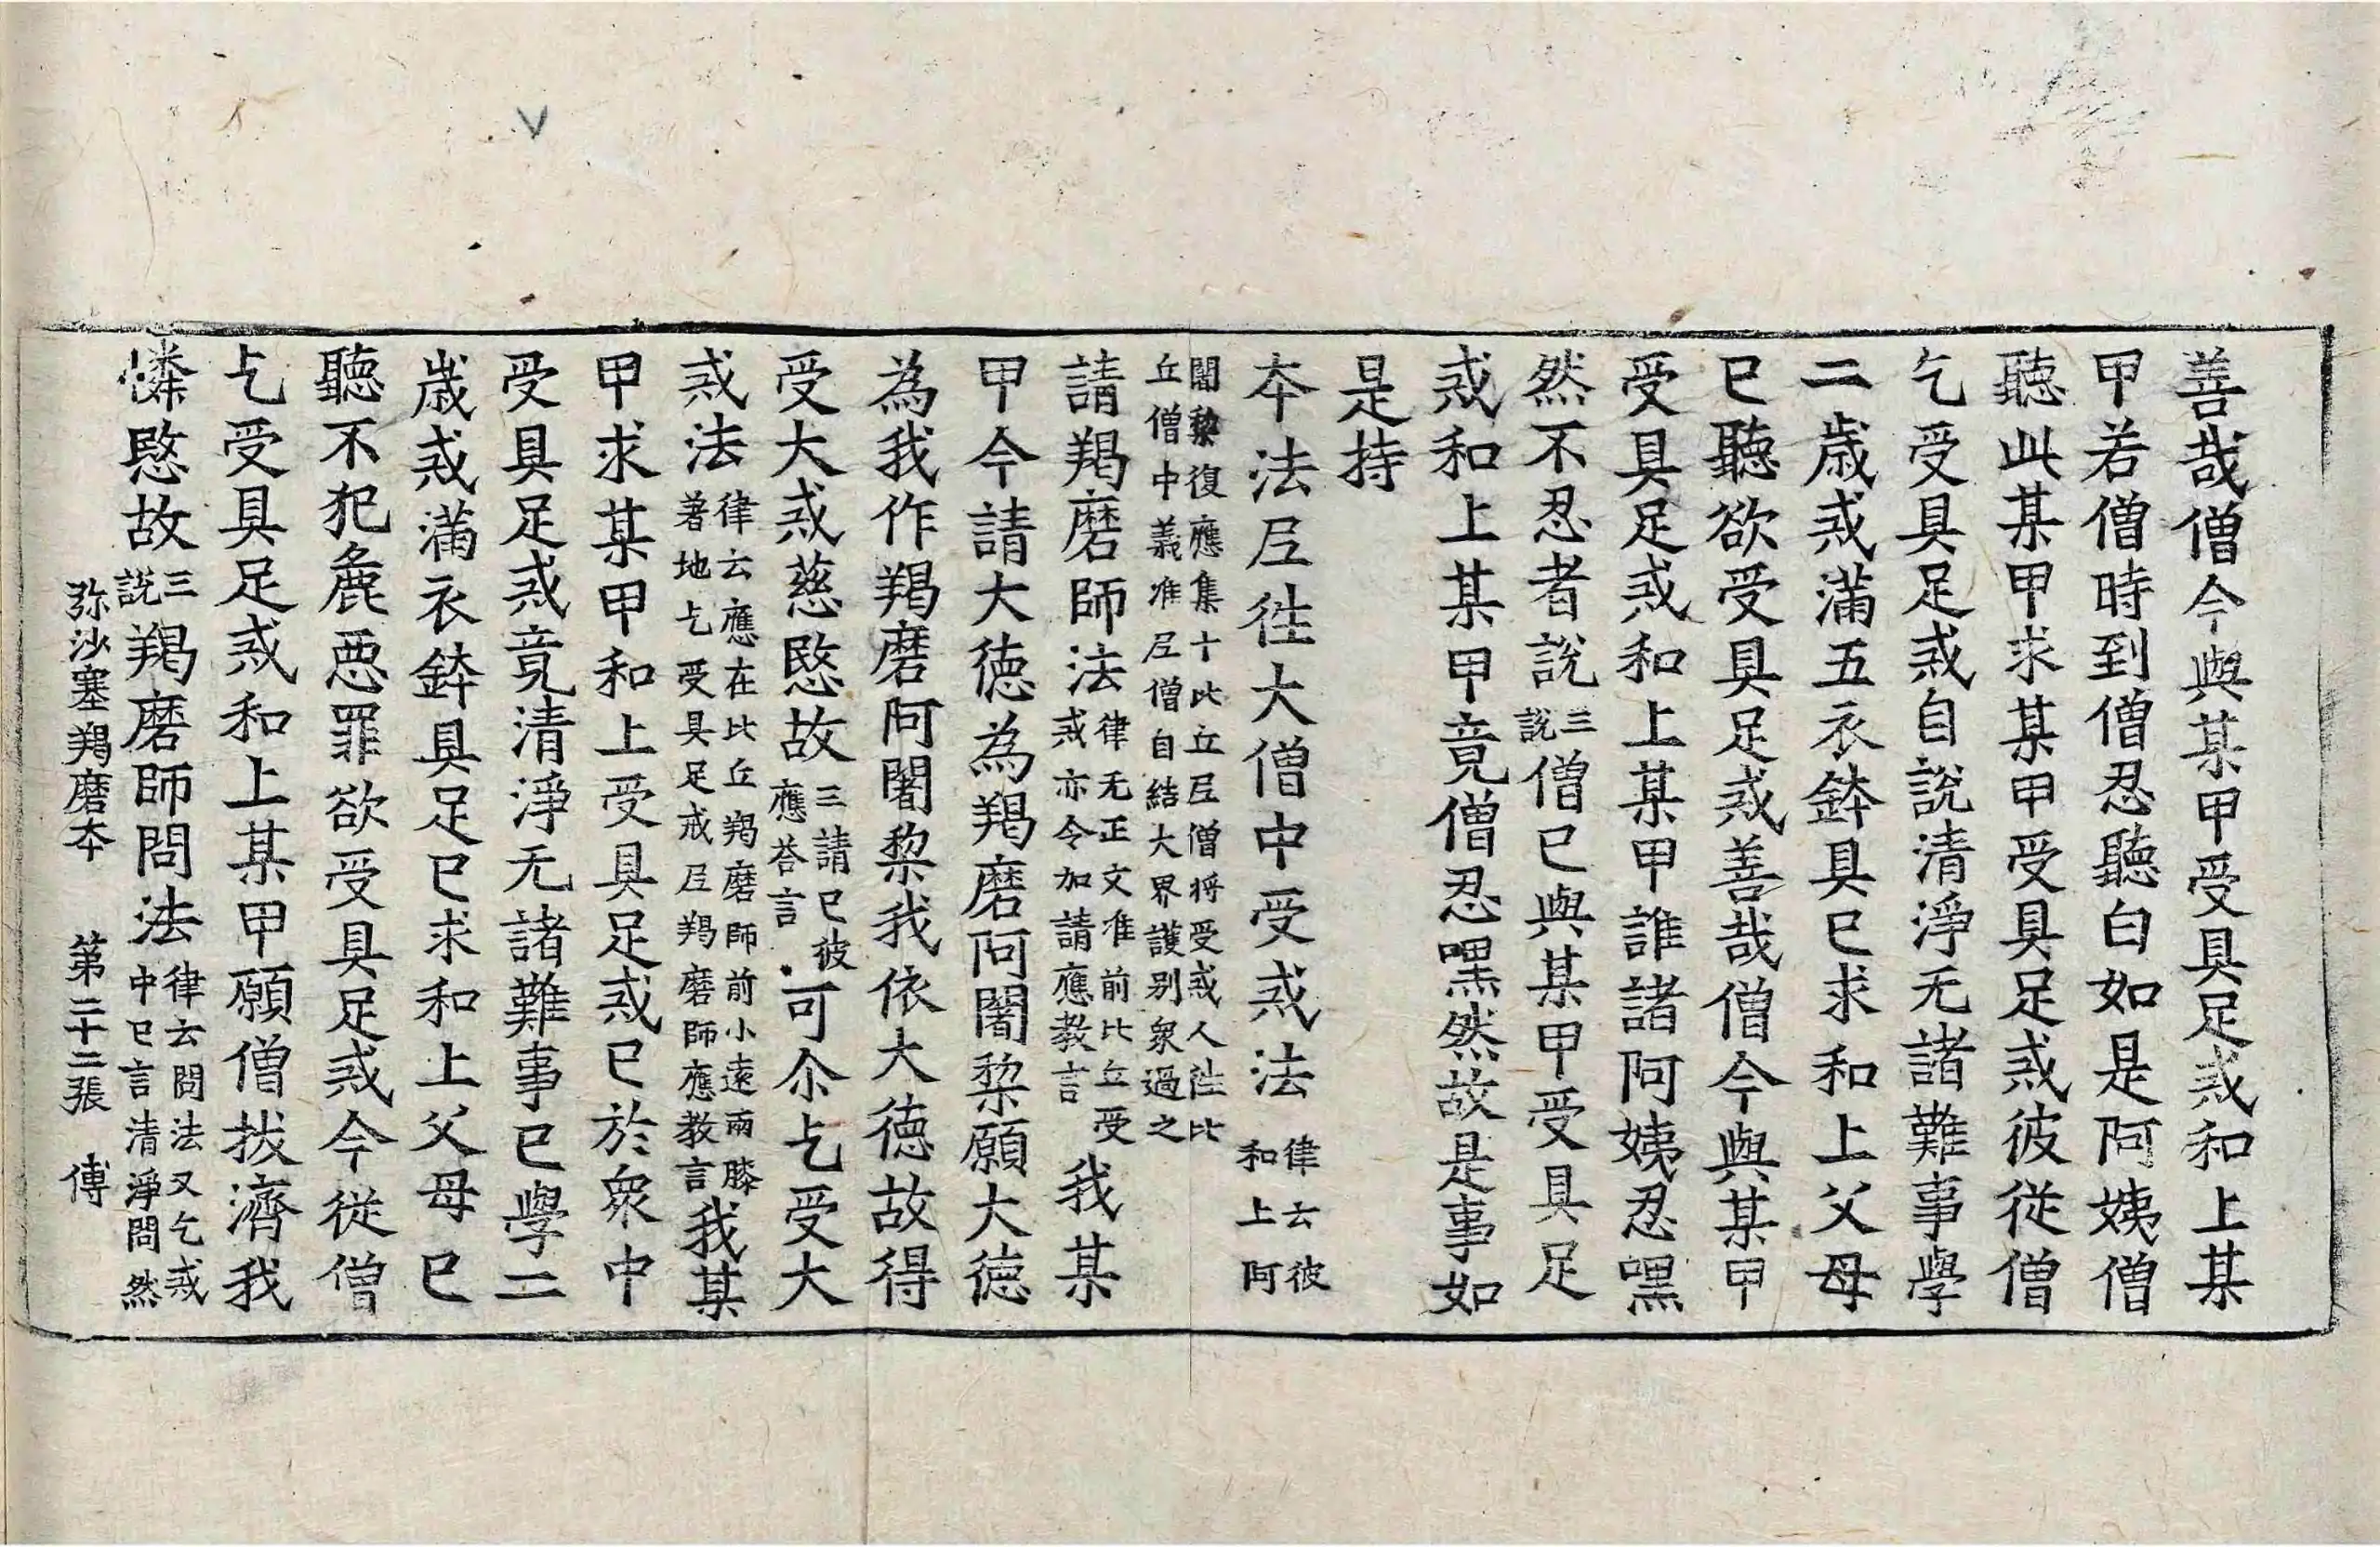 善哉僧今與某甲受具足戒和上某
甲若僧時到僧忍聽白如是阿姨僧
聽此某甲求某甲受具足戒彼從僧
乞受具足戒自說清淨无諸難事學
二歲戒滿五衣鉢具已求和上父母
已聽欲受具足戒善哉僧今與某甲
受具足戒和上某甲誰諸阿姨忍嘿
然不忍者說三說僧已與某甲受具足
戒和上某甲竟僧忍嘿然故是事如
是持
本法尼徃大僧中受戒法律云彼和上阿
闍黎復應集十比丘尼僧將受戒人徃比
丘僧中義准尼僧自結大界護别衆過之
請羯磨師法律无正文准前比丘受戒亦令加請應教言我某
甲今請大德為羯磨阿闍梨願大德
為我作羯磨阿闍梨我依大德故得
受大戒慈愍故三請已彼應荅言可尒乞受大
戒法律云應在比丘羯磨師前小遠兩膝著地乞受具足戒尼羯磨師應教言我某
甲求某甲和上受具足戒已於衆中
受具足戒竟清淨无諸難事已學二
歲戒滿衣鉢具足已求和上父母已
聽不犯麁惡罪欲受具足戒今從僧
乞受具足戒和上某甲願僧拔濟我
憐愍故三說羯磨師問法律云問法又乞戒中已言清淨問然
弥沙塞羯磨本　第二十二張　傅